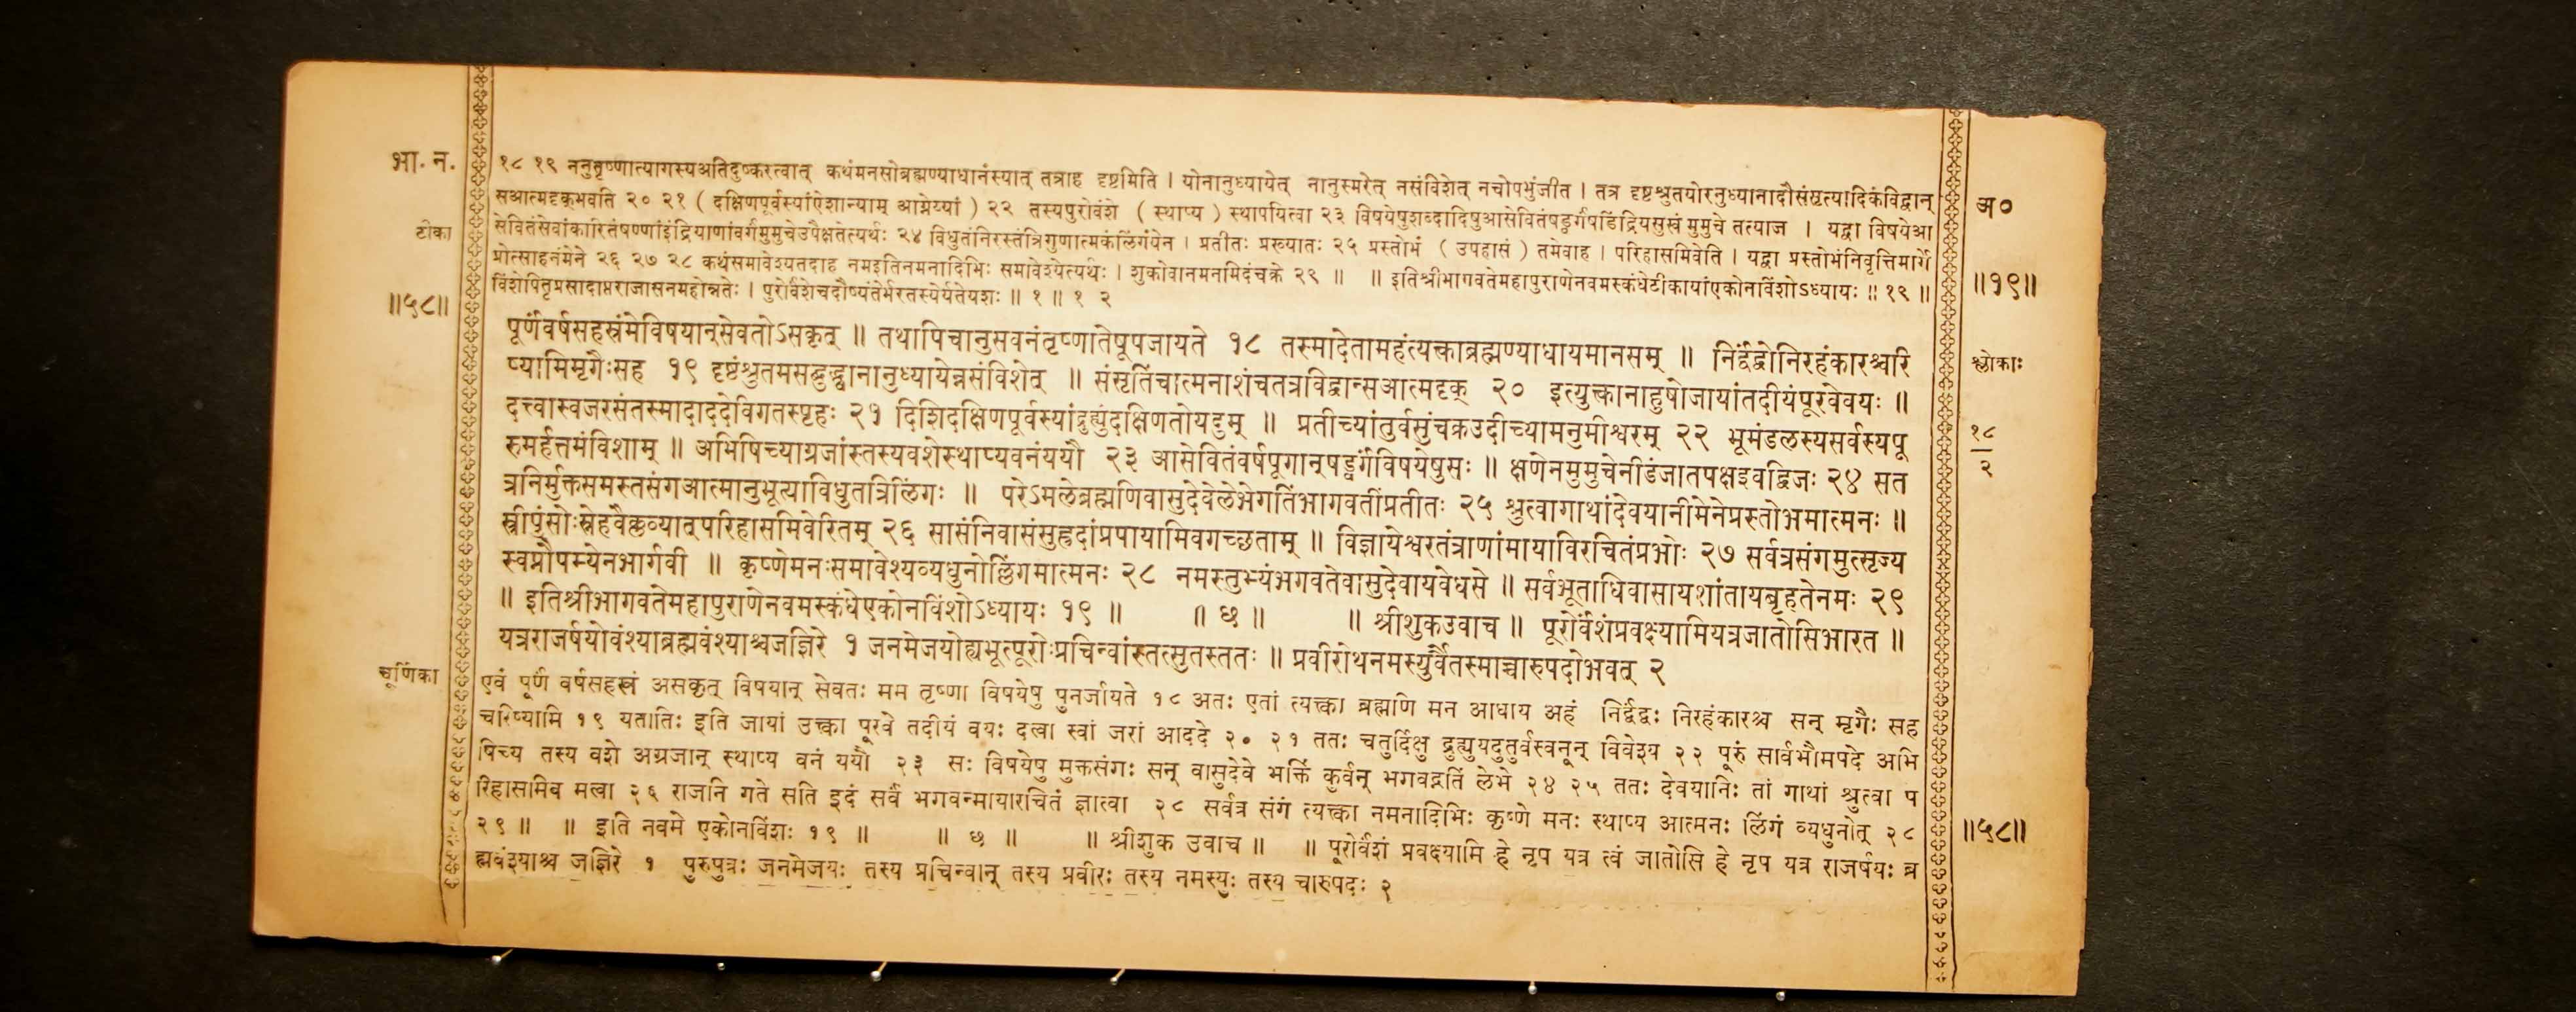 भा. न.
१८ १९ ननुतृष्णात्यागस्यअतिदुष्करत्वात् कथंमनसोब्रह्मण्याधानंस्यात् तत्राह दृष्टमिति । योनानुध्यायेत् नानुस्मरेत् नसंविशेत् नचोपभुंजीत । तत्र दृष्टश्रुतयोरनुध्यानादौसंसृत्यादिकंविद्वान्
सआत्मदृक्भवति २० २१ ( दक्षिणपूर्वस्यांऐशान्याम् आग्नेय्यां ) २२ तस्यपुरोवंशे ( स्थाप्य ) स्थापयित्वा २३ विषयेषुशब्दादिषुआसेवितंषड्वर्गंषडिंद्रियसुखं मुमुचे तत्याज । यद्वा विषयेआ
अ०
टीका
सेवितंसेवांकारितंषण्णांइंद्रियाणांवर्गंमुमुचेउपैक्षतेत्यर्थः २४ विधुतंनिरस्तंत्रिगुणात्मकंलिंगंयेन । प्रतीतः प्रख्यातः २५ प्रस्तोभं ( उपहासं ) तमेवाह । परिहासमिवेति । यद्वा प्रस्तोभंनिवृत्तिमार्गे
प्रोत्साहनंमेने २६ २७ २८ कथंसमावेश्यतदाह नमइतिनमनादिभिः समावेश्येत्यर्थः । शुकोवानमनमिदंचक्रे २९ ॥ ॥ इतिश्रीभागवतेमहापुराणेनवमस्कंधेटीकायांएकोनविंशोऽध्यायः ॥ १९ ॥
॥१९॥
॥५८॥
विंशेपितृप्रसादाप्तराजासनमहोन्नतेः । पुरोर्वंशेचदौष्यंतेर्भरतस्येर्यतेयशः ॥ १ ॥ १ २
पूर्णंवर्षसहस्रंमेविषयान्सेवतोऽसकृत् ॥ तथापिचानुसवनंतृष्णातेषूपजायते १८ तस्मादेतामहंत्यक्त्वाब्रह्मण्याधायमानसम् ॥ निर्द्वंद्वोनिरहंकारश्चरि
श्लोकाः
ष्यामिमृगैःसह १९ दृष्टंश्रुतमसद्बुद्ध्वानानुध्यायेन्नसंविशेत् ॥ संसृतिंचात्मनाशंचतत्रविद्वान्सआत्मदृक् २० इत्युक्त्वानाहुषोजायांतदीयंपूरवेवयः ॥
दत्त्वास्वजरसंतस्मादाददेविगतस्पृहः २१ दिशिदक्षिणपूर्वस्यांद्रुह्युंदक्षिणतोयदुम् ॥ प्रतीच्यांतुर्वसुंचक्रउदीच्यामनुमीश्वरम् २२ भूमंडलस्यसर्वस्यपू
१८
२
रुमर्हत्तमंविशाम् ॥ अभिषिच्याग्रजांस्तस्यवशेस्थाप्यवनंययौ २३ आसेवितंवर्षपूगान्षड्वर्गंविषयेषुसः ॥ क्षणेनमुमुचेनीडंजातपक्षइवद्विजः २४ सत
त्रनिर्मुक्तसमस्तसंगआत्मानुभूत्याविधुतत्रिलिंगः ॥ परेऽमलेब्रह्मणिवासुदेवेलेभेगतिंभागवतींप्रतीतः २५ श्रुत्वागाथांदेवयानीमेनेप्रस्तोभमात्मनः ॥
स्त्रीपुंसोःस्नेहवैक्लव्यात्परिहासमिवेरितम् २६ सासंनिवासंसुहृदांप्रपायामिवगच्छताम् ॥ विज्ञायेश्वरतंत्राणांमायाविरचितंप्रभोः २७ सर्वत्रसंगमुत्सृज्य
स्वप्नौपम्येनभार्गवी ॥ कृष्णेमनःसमावेश्यव्यधुनोल्लिंगमात्मनः २८ नमस्तुभ्यंभगवतेवासुदेवायवेधसे ॥ सर्वभूताधिवासायशांतायबृहतेनमः २९
॥ इतिश्रीभागवतेमहापुराणेनवमस्कंधेएकोनविंशोऽध्यायः १९ ॥ ॥ छ ॥ ॥ श्रीशुकउवाच ॥ पूरोर्वंशंप्रवक्ष्यामियत्रजातोसिभारत ॥
यत्रराजर्षयोवंश्याब्रह्मवंश्याश्चजज्ञिरे १ जनमेजयोह्यभूत्पूरोःप्रचिन्वांस्तत्सुतस्ततः ॥ प्रवीरोथनमस्युर्वैतस्माच्चारुपदोभवत् २
चूर्णिका
एवं पूर्णं वर्षसहस्रं असकृत् विषयान् सेवतः मम तृष्णा विषयेषु पुनर्जायते १८ अतः एतां त्यक्त्वा ब्रह्मणि मन आधाय अहं निर्द्वंद्वः निरहंकारश्च सन् मृगैः सह
चरिष्यामि १९ ययातिः इति जायां उक्त्वा पूरवे तदीयं वयः दत्वा स्वां जरां आददे २० २१ ततः चतुर्दिक्षु द्रुह्युयदुतुर्वस्वनून् विवेश्य २२ पूरुं सार्वभौमपदे अभि
षिच्य तस्य वशे अग्रजान् स्थाप्य वनं ययौ २३ सः विषयेषु मुक्तसंगः सन् वासुदेवे भक्तिं कुर्वन् भगवद्गतिं लेभे २४ २५ ततः देवयानिः तां गाथां श्रुत्वा प
रिहासमिव मत्वा २६ राजनि गते सति इदं सर्वं भगवन्मायारचितं ज्ञात्वा २८ सर्वत्र संगं त्यक्त्वा नमनादिभिः कृष्णे मनः स्थाप्य आत्मनः लिंगं व्यधुनोत् २८
२९ ॥ ॥ इति नवमे एकोनविंशः १९ ॥ ॥ छ ॥ ॥ श्रीशुक उवाच ॥ ॥ पूरोर्वंशं प्रवक्ष्यामि हे नृप यत्र त्वं जातोसि हे नृप यत्र राजर्षयः ब्र
॥५८॥
ह्मवंश्याश्च जज्ञिरे १ पुरुपुत्रः जनमेजयः तस्य प्रचिन्वान् तस्य प्रवीरः तस्य नमस्युः तस्य चारुपदः २